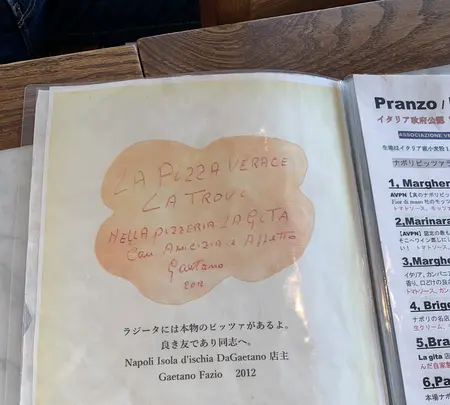 LA PIZZA VERACE
LA TROVI
NELLA PIZZERIA LA GITA
Con AMICIZIA e Affetto
Gaetano
2012
ラジータには本物のピッツァがあるよ。
良き友であり同志へ。
Napoli Isola d'ischia DaGaetano 店主
Gaetano Fazio 2012
Pranzo /
イタリア政府公認
ASSOCIAZIONE VE
生地はイタリア産小麦粉1
ナポリピッツァ
1, Margher
【AVPN】
Fior di mano 社のモッツ
トマトソース、モッツ
2,Marinara
【AVPN】認定の最も
3,Marghe
イタリア、カンパニ
香り、口どけの良
トマトソース、カン
4, Brige
ナポリの名店
生クリーム、
5,Bra
La gita
んだ自家製
6,Pa
本場ナポ